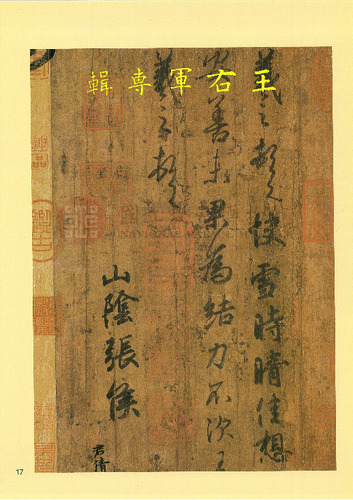 王右軍專輯
羲之頓首快雪時晴佳想
安善未果為結力不次王
羲之頓首
山陰張侯
君倩
神品
17